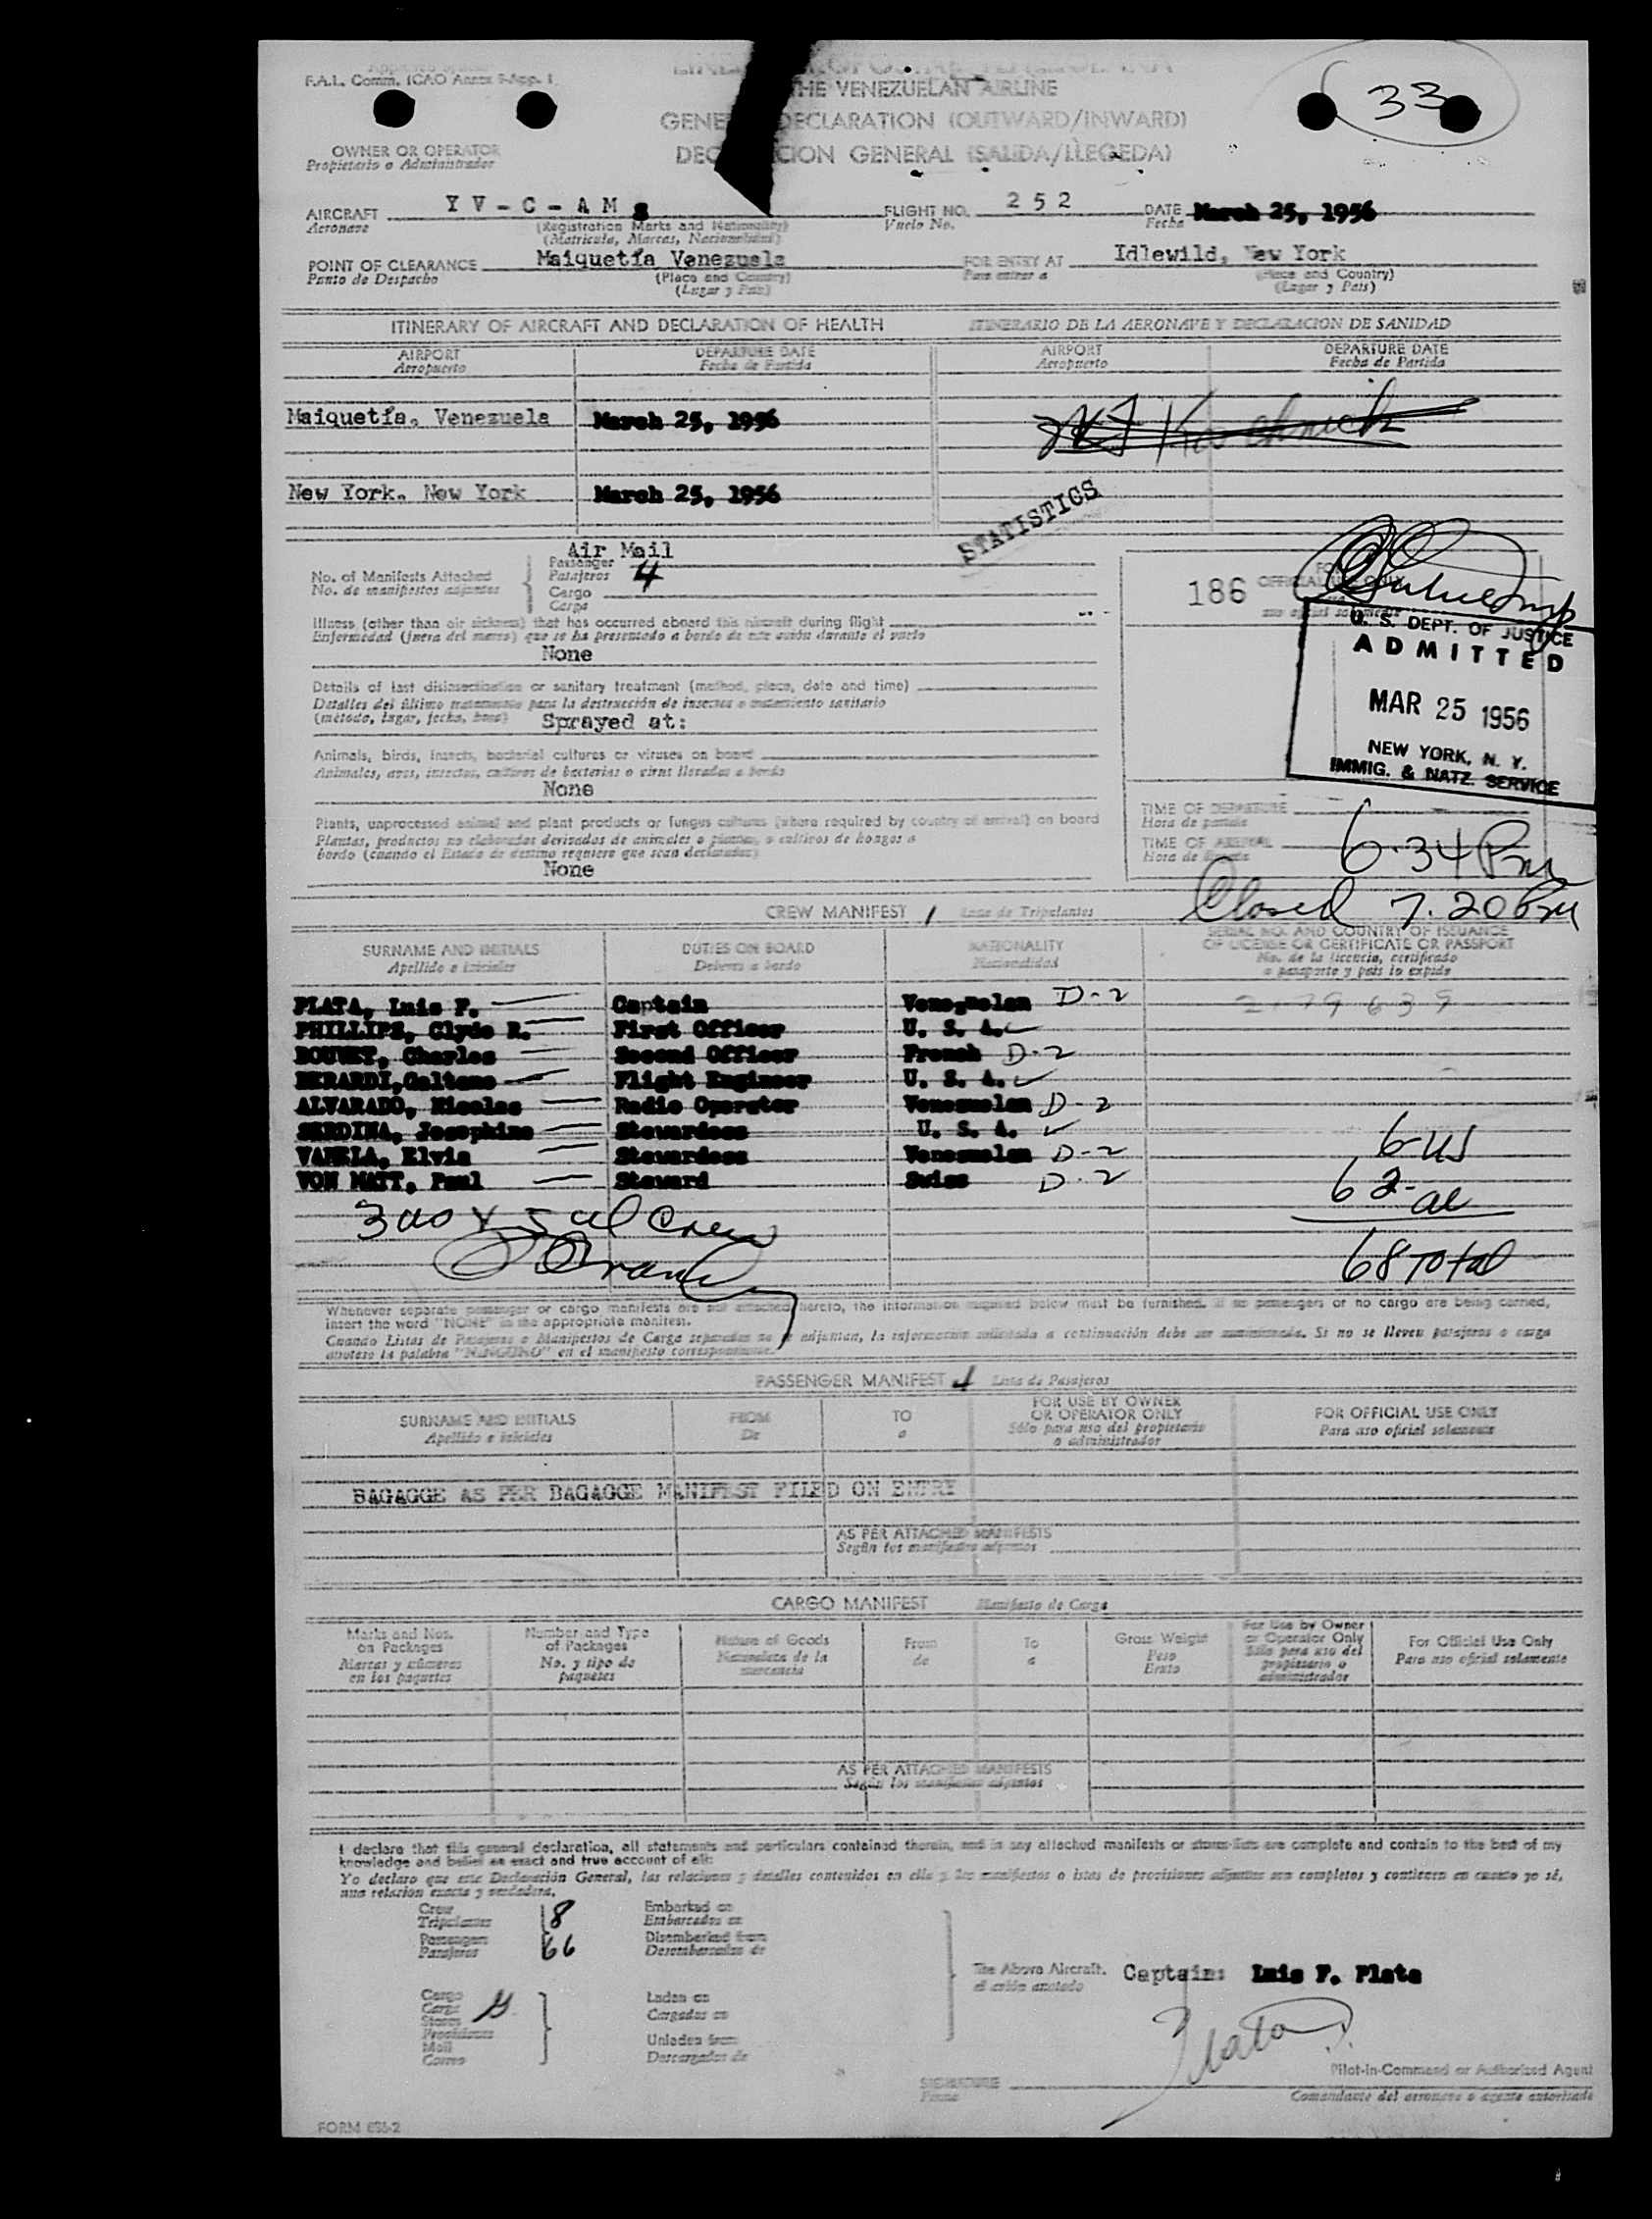 F.A.L. Comm. ICAO Annex 9-App. 1
THE VENEZUELAN AIRLINE
33
GENE DECLARATION (OUTWARD/INWARD)
DEC CION GENERAL (SALIDA/LLEGEDA)
OWNER OR OPERATOR
Propietario o Administrador
AIRCRAFT YV-C-AMS FLIGHT NO. 252 DATE March 25, 1956
Aeronave (Registration Marks and Nationality) Vuelo No. Fecha
(Matricula, Marcas, Nacionalidad)
POINT OF CLEARANCE Maiquetía Venezuela FOR ENTRY AT Idlewild, New York
Punto de Despacho (Place and Country) Para entrar a (Place and Country)
(Lugar y Pais) (Lugar y Pais)
ITINERARY OF AIRCRAFT AND DECLARATION OF HEALTH ITINERARIO DE LA AERONAVE Y DECLARACION DE SANIDAD
AIRPORT DEPARTURE DATE AIRPORT DEPARTURE DATE
Aeropuerto Fecha de Partida Aeropuerto Fecha de Partida
Maiquetía, Venezuela March 25, 1956
New York, New York March 25, 1956
STATISTICS
Air Mail
No. of Manifests Attached Passenger
No. de manifiestos adjuntos Pasajeros 4
Cargo
Carga
186 FOR OFFICIAL USE ONLY
Illness (other than air sickness) that has occurred aboard this aircraft during flight
Enfermedad (fuera del mareo) que se ha presentado a bordo de este avión durante el vuelo
None
U. S. DEPT. OF JUSTICE
ADMITTED
MAR 25 1956
NEW YORK, N. Y.
IMMIG. & NATZ. SERVICE
Details of last disinsectisation or sanitary treatment (method, place, date and time)
Detalles del último tratamiento para la destrucción de insectos o tratamiento sanitario
(método, lugar, fecha, hora) Sprayed at:
Animals, birds, insects, bacterial cultures or viruses on board
Animales, aves, insectos, cultivos de bacterias o virus llevados a bordo
None
Plants, unprocessed animal and plant products or fungus cultures (where required by country of arrival) on board
Plantas, productos no elaborados derivados de animales o plantas, o cultivos de hongos a
bordo (cuando el Estado de destino requiere que sean declarados)
None
TIME OF DEPARTURE
Hora de partida
TIME OF ARRIVAL 6.34 Pm
Hora de llegada
Closed 7.20 Pm
CREW MANIFEST 1 Lista de Tripulantes
SURNAME AND INITIALS DUTIES ON BOARD NATIONALITY SERIAL NO. AND COUNTRY OF ISSUANCE
Apellido e iniciales Deberes a bordo Nacionalidad OF LICENSE OR CERTIFICATE OR PASSPORT
No. de la licencia, certificado
o pasaporte y país lo expide
PLATA, Luis F. Captain Venezuelan D-2 2179639
PHILLIPS, Clyde R. First Officer U. S. A.
BOUVET, Charles Second Officer French D-2
BERARDI, Galtano Flight Engineer U. S. A.
ALVARADO, Nicolas Radio Operator Venezuelan D-2
SERDINA, Josephine Stewardess U. S. A.
VARELA, Elvia Stewardess Venezuelan D-2
VON MATT, Paul Steward Swiss D-2
6-US
62-al
68 Total
3 US & 5 al Crew
Whenever separate passenger or cargo manifests are not attached hereto, the information required below must be furnished. If no passengers or no cargo are being carried,
insert the word "NONE" in the appropriate manifest.
Cuando Listas de Pasajeros o Manifiestos de Carga separados no se adjuntan, la información solicitada a continuación debe ser suministrada. Si no se lleven pasajeros o carga
anotese la palabra "NINGUNO" en el manifiesto correspondiente.
PASSENGER MANIFEST 4 Lista de Pasajeros
SURNAME AND INITIALS FROM TO FOR USE BY OWNER OR OPERATOR ONLY FOR OFFICIAL USE ONLY
Apellido e iniciales De a Sólo para uso del propietario o administrador Para uso oficial solamente
BAGAGGE AS PER BAGAGGE MANIFEST FILED ON ENTRY
AS PER ATTACHED MANIFESTS
Según los manifiestos adjuntos
CARGO MANIFEST Manifiesto de Carga
Marks and Nos. on Packages Number and Type of Packages Nature of Goods From To Gross Weight For Use by Owner or Operator Only For Official Use Only
Marcas y números en los paquetes No. y tipo de paquetes Naturaleza de la mercancia de a Peso Bruto Sólo para uso del propietario o administrador Para uso oficial solamente
AS PER ATTACHED MANIFESTS
Según los manifiestos adjuntos
I declare that this general declaration, all statements and particulars contained therein, and in any attached manifests or stores lists are complete and contain to the best of my
knowledge and belief an exact and true account of all:
Yo declaro que este Declaración General, las relaciones y detalles contenidos en ella y los manifiestos o istas de provisiones adjuntas son completos y contienen en cuanto yo sé,
una relación exacta y verdadera.
Crew 8 Embarked on
Tripulantes Embarcados en
Passengers 66 Disembarked from
Pasajeros Desembarcados de
The Above Aircraft. Captain: Luis F. Plata
el avión anotado
Cargo Laden on
Carga Cargados en
Stores
Provisiones Unladen from
Mail Descargados de
Correo
Plata
Pilot-in-Command or Authorized Agent
SIGNATURE
Firma Comandante del aeronave o agente autorizado
FORM 636-2